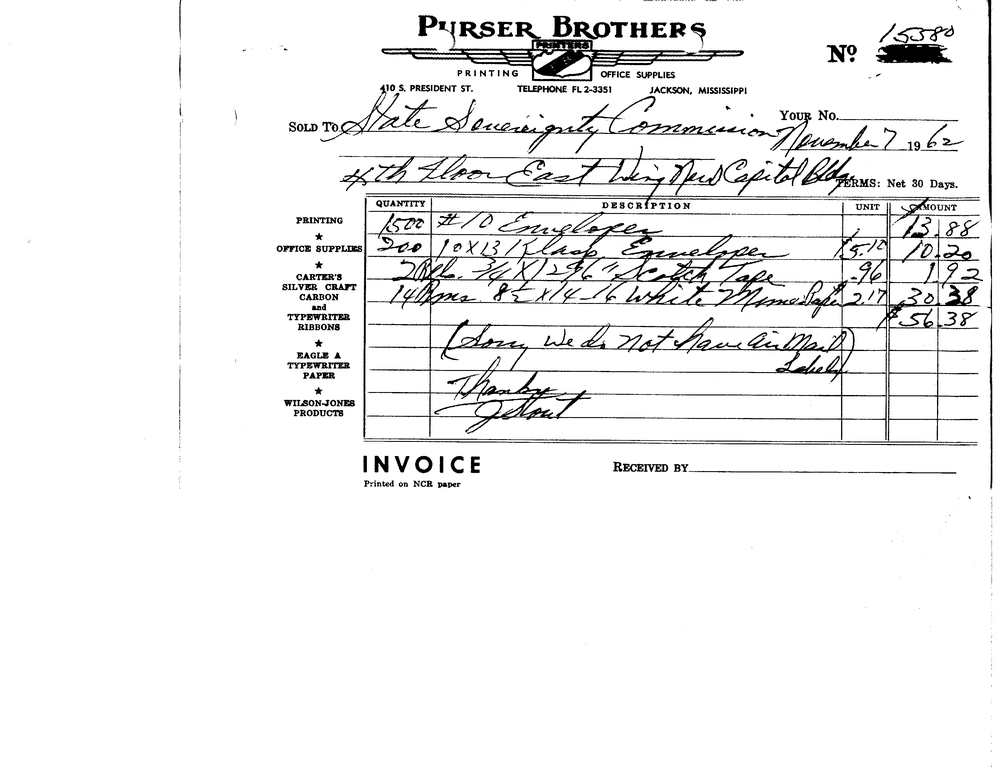 PURSER BROTHERS
PRINTERS
PRINTING OFFICE SUPPLIES
No. 15380
410 S. PRESIDENT ST. TELEPHONE FL 2-3351 JACKSON, MISSISSIPPI
YOUR NO.
SOLD TO State Sovereignty Commission November 7 1962
4th Floor East Wing New Capitol Bldg
TERMS: Net 30 Days.
QUANTITY DESCRIPTION UNIT AMOUNT
PRINTING 1500 #10 Envelopes 13.88
★
OFFICE SUPPLIES 200 10x13 Klasp Envelopes 5.10 10.20
★
CARTER'S 2 Rls. 3/4 x 1296" Scotch Tape .96 1 92
SILVER CRAFT
CARBON 14 Rms 8½ x 14-16 White Mimeo Paper 2.17 30.38
and
TYPEWRITER $56.38
RIBBONS
★ (Sorry We do not have Air Mail
EAGLE A Labels)
TYPEWRITER
PAPER Thanks
★
WILSON-JONES J Stout
PRODUCTS
INVOICE RECEIVED BY
Printed on NCR paper